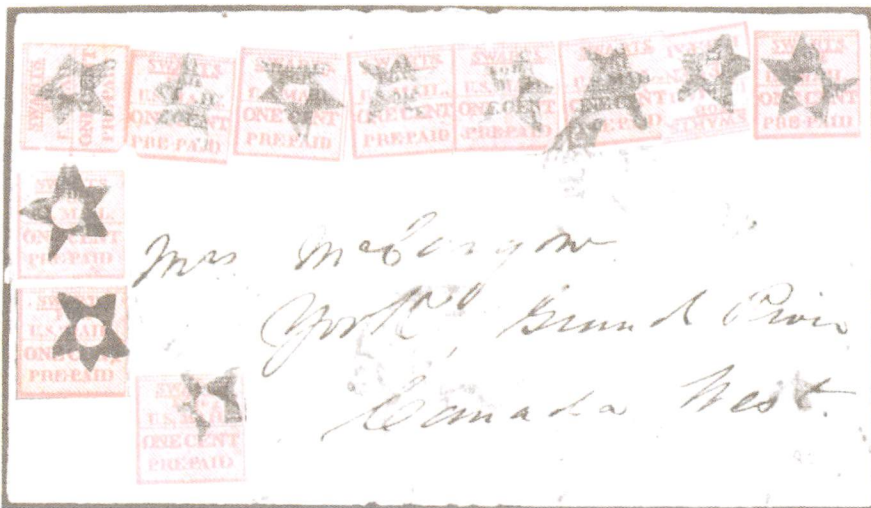 SWARTS
U.S. MAIL
ONE CENT
PRE-PAID
SWARTS
ONE CENT
PRE-PAID
CENT
PRE-PAID
SWARTS
U.S. MAIL,
ONE CENT
PRE-PAID
SWARTS
U.S. MAIL,
ONE CENT
PRE-PAID
SWARTS
U.S. MAIL
CENT
PRE-PAID
SWARTS
ONE CENT
PRE-PAID
SWARTS
ONE CENT
PRE-PAID
MAIL,
ONE CENT
PRE-PAID
U.S. MAIL
ONE CENT
PRE-PAID
SWARTS
U.S. MAIL
ONE CENT
PRE-PAID
Mrs
York, Grand River
Canada West.